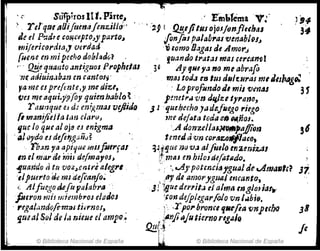 Surpiros III. Parte,
Y el que allì fuena fenzillo
de el Padre concepto, y parto,
mifericordia, y verdad
fuene en mi pecho doblado?
Que quanto antiguos Prophetas
me adiuinaban en cantos
ya me es prefente, y me dize,
ves me aqui. yo foy quien hablo
Y aunque es de enigmas veftido
fe manifiefta tan claro,
que lo que al ojo es enigma
al oydo es
Y van ya aptique mis fuerças
en el mar de mis defmayos,
quando à tu voz, entrè alegre
el puerto de mi defcanfo.
Al fuego de fu palabra
fueron mis miembros elados
regalandofe mas tiernos,
que al Sol de la nieue el ampo.
Emblema V.
Que fi tus ojos fon flechas
fon fus palabras venablos,
ò como Bagas de Amor,
quando tratas mas cercano!
Ay que ya no me abrafo
mas toda en tus dulçuras me deshago
Lo profundo de mis venas
penetra vn dulze tyrano,
que hecho ya de fuego riego
me dexa toda en
A donzellas
tened à vn coraçon
que no va al fuelo
mas en hilos defatado.
Ay potencia ygual de
ay de amor ygual encanto,
que derrita el alma en glorias,
con defplegar folo vn labio.
Y por bronce que fea vn pecho
anfi à tu tierno regalo
Qui
fe
© Biblioteca Nacional de España
© Biblioteca Nacional de España